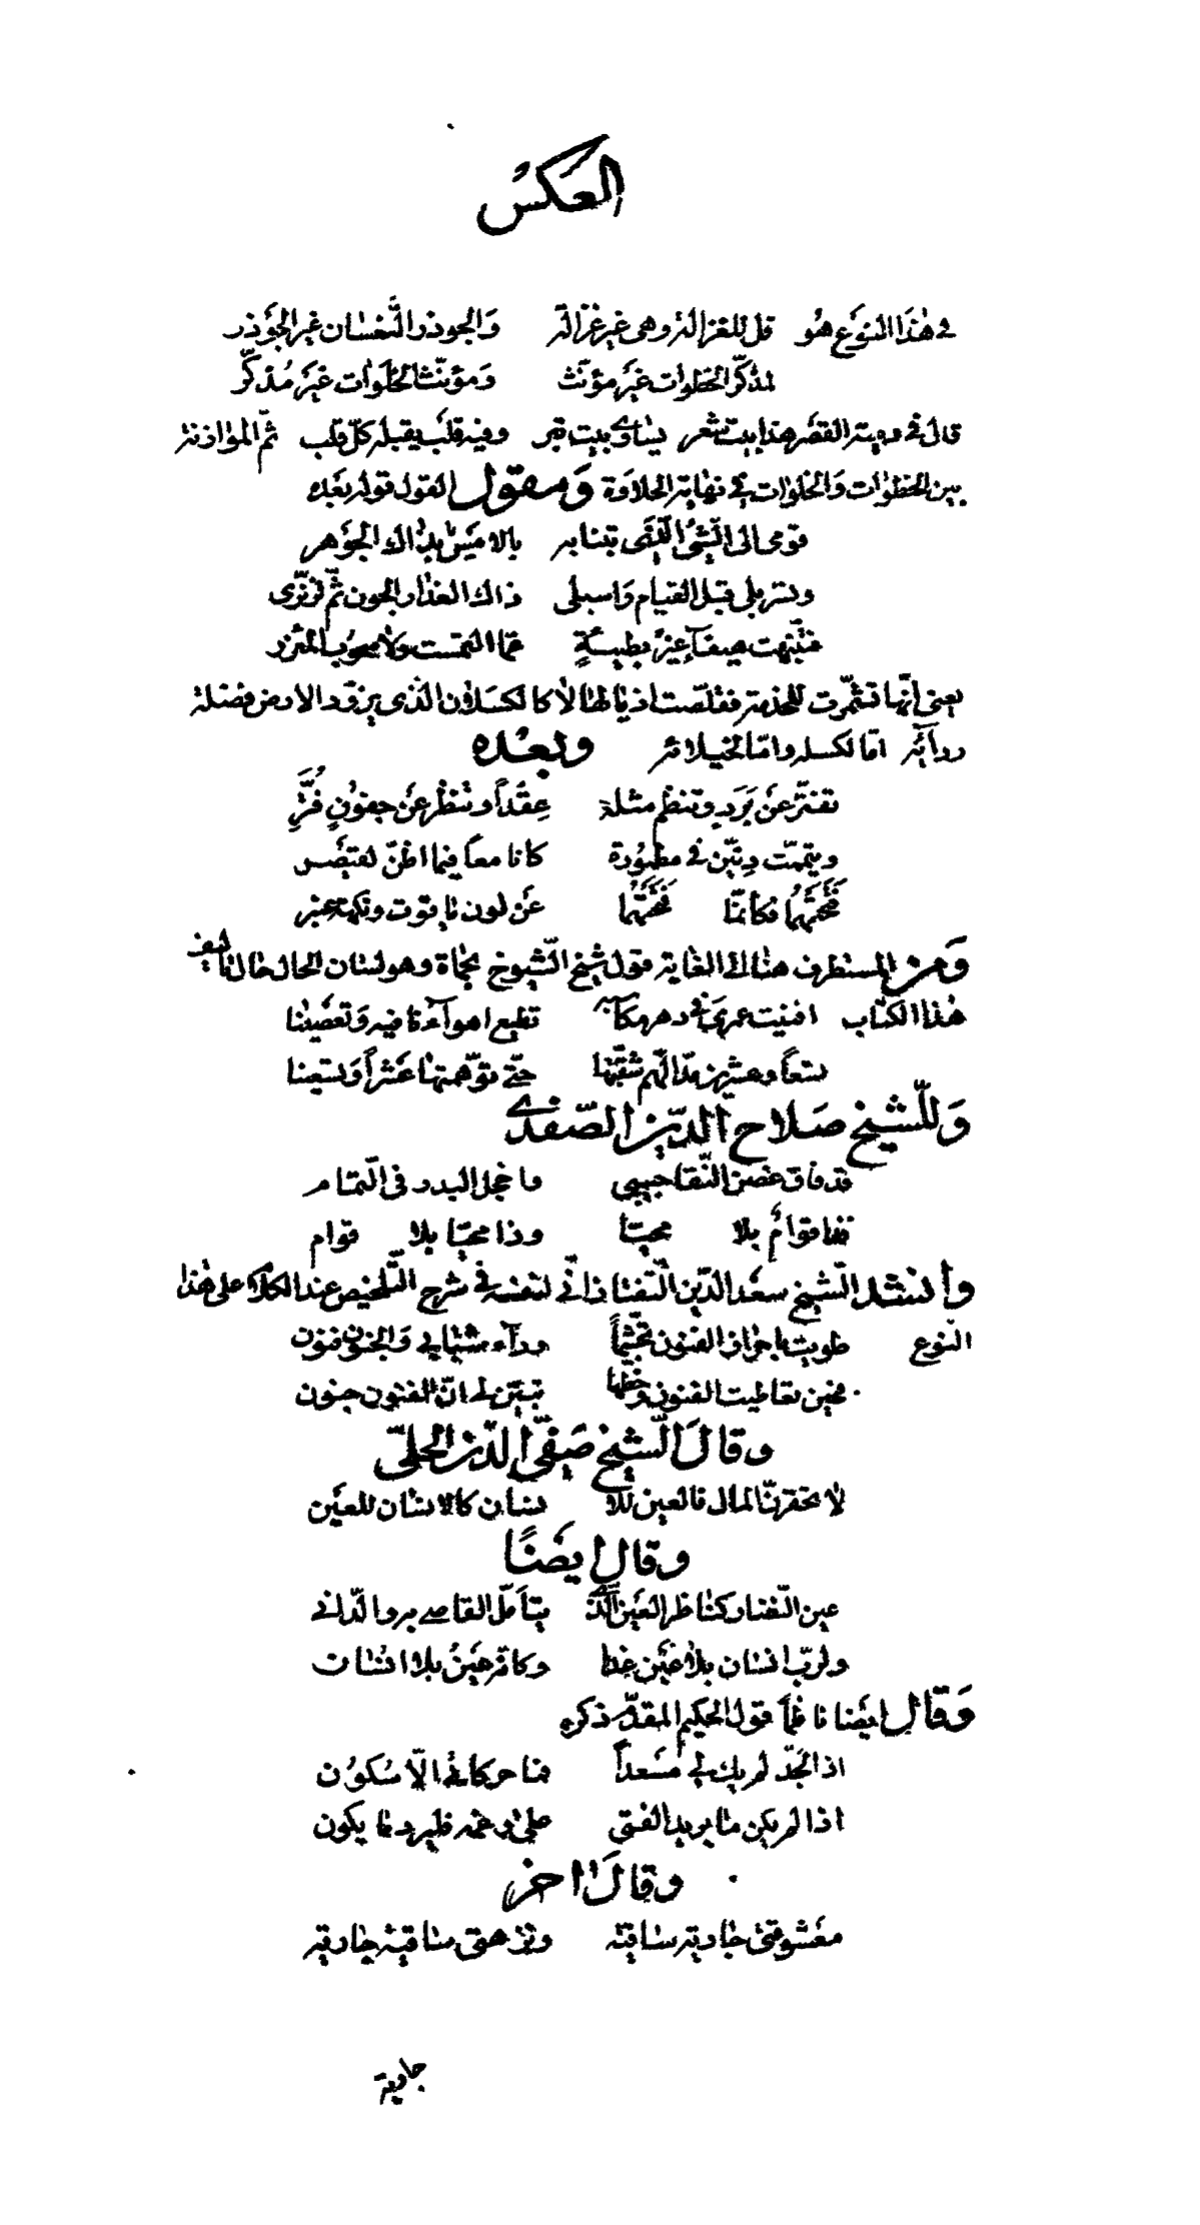 العكس
في هذا النوع هو قل للغزالة وهي غير غزالة والجوذر النعسان غير الجوذر
لمذكّر الخطوات غير مؤنّث ومؤنّث الخلوات غير مذكّر
قال في دمية القصر هذا بيت شعر يساوي بيت تبر وفيه قلب يقبله كلّ قلب ثمّ الموازنة
بين الخطوات والخلوات في نهاية الحلاوة ومقول القول قوله بعده
قومي الى الشيء الّتي بتنا به بالامس بذاك الجوهر
وتسربلي قبل القيام واسبلي ذاك العذار الجون ثمّ تزنّري
فتنبّهت هيفاء غير بطيئةٍ عمّا التمست ولا سحوب المئزر
يعني انّها تشمّرت للخدمة فقلّصت اذيالها لا كالكسلان الّذي يزوّد الارض فضلة
ردائه امّا لكسله وامّا لخيلائه وبعده
تفترّ عن بردٍ وتنظم مثله عقداً وتنظر عن جفونٍ فُتَّرِ
ويتمت دنّين في مطمورة كانا معاً فيما اظنّ لقيصر
ففتحتها فكأنّما فتحتها عن لون ياقوت ونكهة عنبر
ومن المستظرف هنا الى الغاية قول شيخ الشيوخ بحماة وهو لسان الحال حال تأليف
هذا الكتاب افنيت عمري في دهر مكاسبه تطيع اهواءنا فيه وتعصينا
تسعاً وعشرين مدّ الهم شقّتها حتّى توهّمتها عشراً وتسعينا
وللشيخ صلاح الدين الصفدي
قد فاق غصن النّقا حبيبي واخجل البدر في التّمام
فذا قوامٌ بلا محيّا وذا محيّا بلا قوام
وأنشد الشيخ سعد الدّين التّفتازانّي لنفسه في شرح التّلخيص عند الكلام على هذا
النوع طويت باحراز الفنون تجشّماً رداء شبابي والجنون فنون
فحين تعاطيت الفنون وخطّها تبيّن لي انّ الفنون جنون
وقال الشيخ صفيّ الدّين الحلّيّ
لا تحقرنّ المال فالعين للا نسان كالانسان للعين
وقال ايضًا
عين النّضار كناظر العين الّذي يتأمّل القاصي به والدّاني
ولربّ انسان بلا عين غدا وكانّه عينٌ بلا انسان
وقال ايضا ناظماً قول الحكيم المقدّم ذكره
اذ الجدّ لم يك لي مسعداً فما حركاتي الّا سكون
اذا لم يكن ما يريد الفتى على رغمه فليرد ما يكون
وقال اخر
معشوقتي جارية ساقية ونزهتي ساقية جارية
جارية